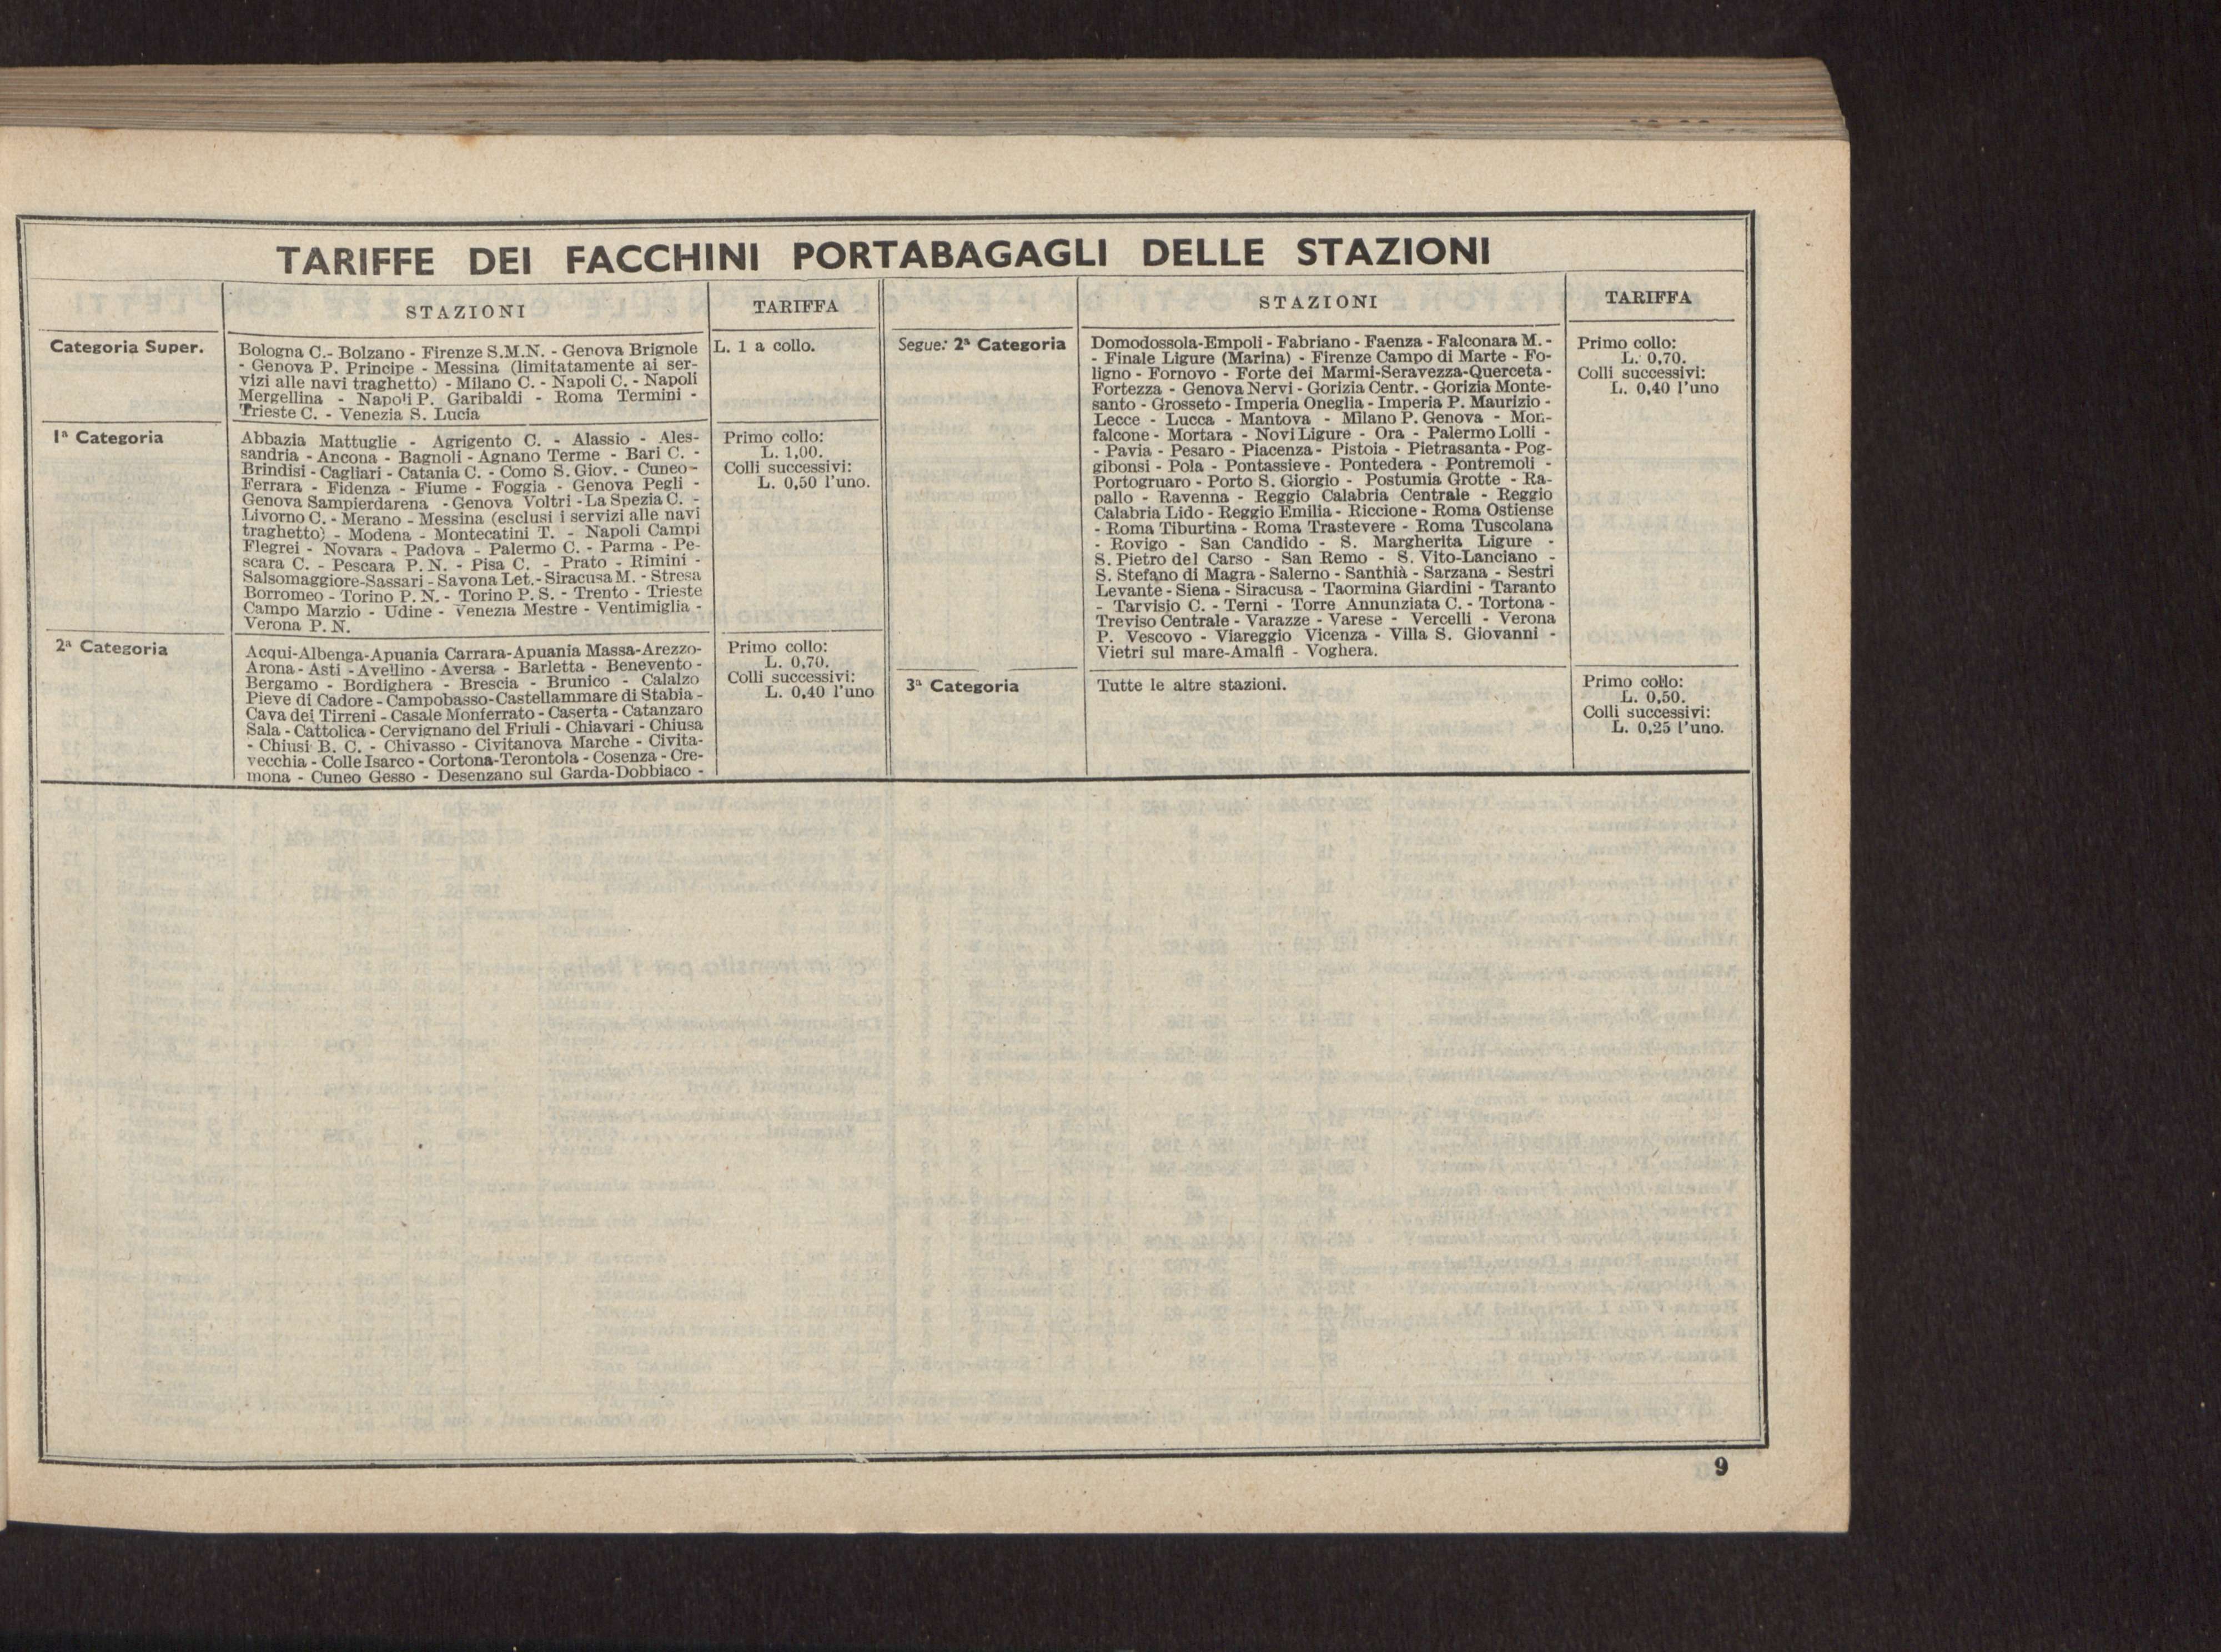 TARIFFE DEI FACCHINI PORTABAGAGLI DELLE STAZIONI
STAZIONI
TARIFFA
Categoria Super.
Bologna C.- Bolzano - Firenze S.M.N. - Genova Brignole
- Genova P. Principe - Messina (limitatamente ai ser-
vizi alle navi traghetto) - Milano C. - Napoli C. - Napoli
Mergellina - Napoli P. Garibaldi - Roma Termini -
Trieste C. - Venezia S. Lucia
L. 1 a collo.
1ª Categoria
Abbazia Mattuglie - Agrigento C. - Alassio - Ales-
sandria - Ancona - Bagnoli - Agnano Terme - Bari C. -
Brindisi - Cagliari - Catania C. - Como S. Giov. - Cuneo-
Ferrara - Fidenza - Fiume - Foggia - Genova Pegli -
Genova Sampierdarena - Genova Voltri - La Spezia C. -
Livorno C. - Merano - Messina (esclusi i servizi alle navi
traghetto) - Modena - Montecatini T. - Napoli Campi
Flegrei - Novara - Padova - Palermo C. - Parma - Pe-
scara C. - Pescara P. N. - Pisa C. - Prato - Rimini -
Salsomaggiore-Sassari - Savona Let.- Siracusa M. - Stresa
Borromeo - Torino P. N. - Torino P. S. - Trento - Trieste
Campo Marzio - Udine - Venezia Mestre - Ventimiglia -
Verona P. N.
Primo collo:
L. 1,00.
Colli successivi:
L. 0,50 l'uno.
2ª Categoria
Acqui-Albenga-Apuania Carrara-Apuania Massa-Arezzo-
Arona - Asti - Avellino - Aversa - Barletta - Benevento -
Bergamo - Bordighera - Brescia - Brunico - Calalzo
Pieve di Cadore - Campobasso-Castellammare di Stabia -
Cava dei Tirreni - Casale Monferrato - Caserta - Catanzaro
Sala - Cattolica - Cervignano del Friuli - Chiavari - Chiusa
- Chiusi B. C. - Chivasso - Civitanova Marche - Civita-
vecchia - Colle Isarco - Cortona-Terontola - Cosenza - Cre-
mona - Cuneo Gesso - Desenzano sul Garda-Dobbiaco -
Primo collo:
L. 0,70.
Colli successivi:
L. 0,40 l'uno
STAZIONI
TARIFFA
Segue: 2ª Categoria
Domodossola-Empoli - Fabriano - Faenza - Falconara M. -
- Finale Ligure (Marina) - Firenze Campo di Marte - Fo-
ligno - Fornovo - Forte dei Marmi-Seravezza-Querceta -
Fortezza - Genova Nervi - Gorizia Centr. - Gorizia Monte-
santo - Grosseto - Imperia Oneglia - Imperia P. Maurizio -
Lecce - Lucca - Mantova - Milano P. Genova - Mon-
falcone - Mortara - Novi Ligure - Ora - Palermo Lolli -
- Pavia - Pesaro - Piacenza - Pistoia - Pietrasanta - Pog-
gibonsi - Pola - Pontassieve - Pontedera - Pontremoli -
Portogruaro - Porto S. Giorgio - Postumia Grotte - Ra-
pallo - Ravenna - Reggio Calabria Centrale - Reggio
Calabria Lido - Reggio Emilia - Riccione - Roma Ostiense
- Roma Tiburtina - Roma Trastevere - Roma Tuscolana
- Rovigo - San Candido - S. Margherita Ligure -
S. Pietro del Carso - San Remo - S. Vito-Lanciano -
S. Stefano di Magra - Salerno - Santhià - Sarzana - Sestri
Levante - Siena - Siracusa - Taormina Giardini - Taranto
- Tarvisio C. - Terni - Torre Annunziata C. - Tortona -
Treviso Centrale - Varazze - Varese - Vercelli - Verona
P. Vescovo - Viareggio Vicenza - Villa S. Giovanni -
Vietri sul mare-Amalfi - Voghera.
Primo collo:
L. 0,70.
Colli successivi:
L. 0,40 l'uno
3ª Categoria
Tutte le altre stazioni.
Primo collo:
L. 0,50.
Colli successivi:
L. 0,25 l'uno.
9